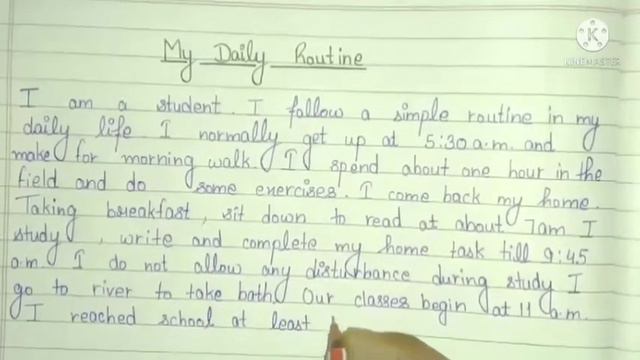 My Daily Routine
I am a student. I follow a simple routine in my
daily life. I normally get up at 5:30 a.m. and
make for morning walk. I spend about one hour in the
field and do some exercises. I come back my home.
Taking breakfast, sit down to read at about 7am I
study, write and complete my home task till 9:45
a.m. I do not allow any disturbance during study I
go to river to take bath. Our classes begin at 11 a.m.
I reached school at least
K
KINEMASTER